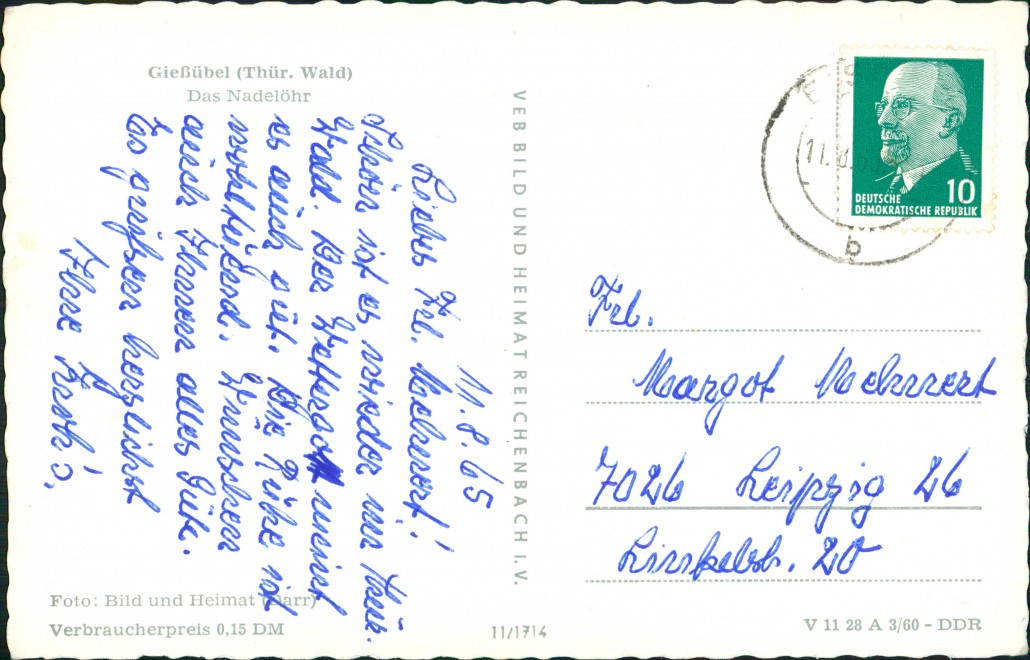 Gießübel (Thür. Wald)
Das Nadelöhr
11.8.65
Liebes Frl. !
Schön ist es wieder im Thür.
Wald. Der Wettergott meint
es auch gut. Die Ruhe ist
wohltuend. Wünschen
auch Ihnen alles Gute.
Es grüßen herzlichst
Ihre
Foto: Bild und Heimat (Darr)
Verbraucherpreis 0,15 DM
VEB BILD UND HEIMAT REICHENBACH i. V.
11/1714
11.8.65
b
DEUTSCHE
DEMOKRATISCHE REPUBLIK
10
Frl.
Margot
7026 Leipzig 26
20
V 11 28 A 3/60 - DDR